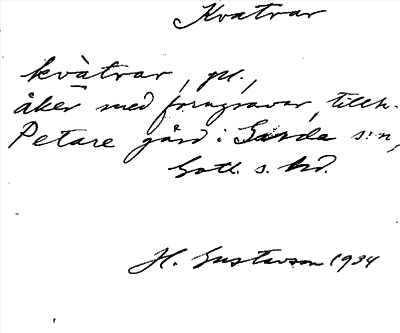 Kvatrar
kvàtrar, pl.,
åker med forngravar, tillh.
Petare gård i Garda s:n,
Gotl. s. hd.
H. Gustavson 1934